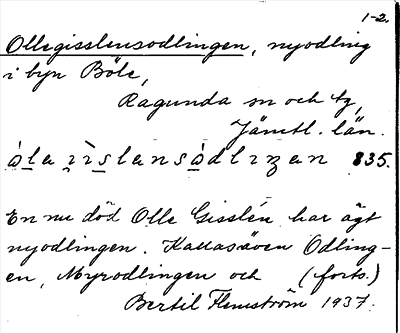 1-2.
Ollegisslensodlingen, nyodling
i byn Böle,
Ragunda sn och tg,
Jämtl. län.
835.
En nu död Olle Gisslén har ägt
nyodlingen. Kallas även Odling-
en, Myrodlingen och (forts.)
Bertil Flemström 1937.